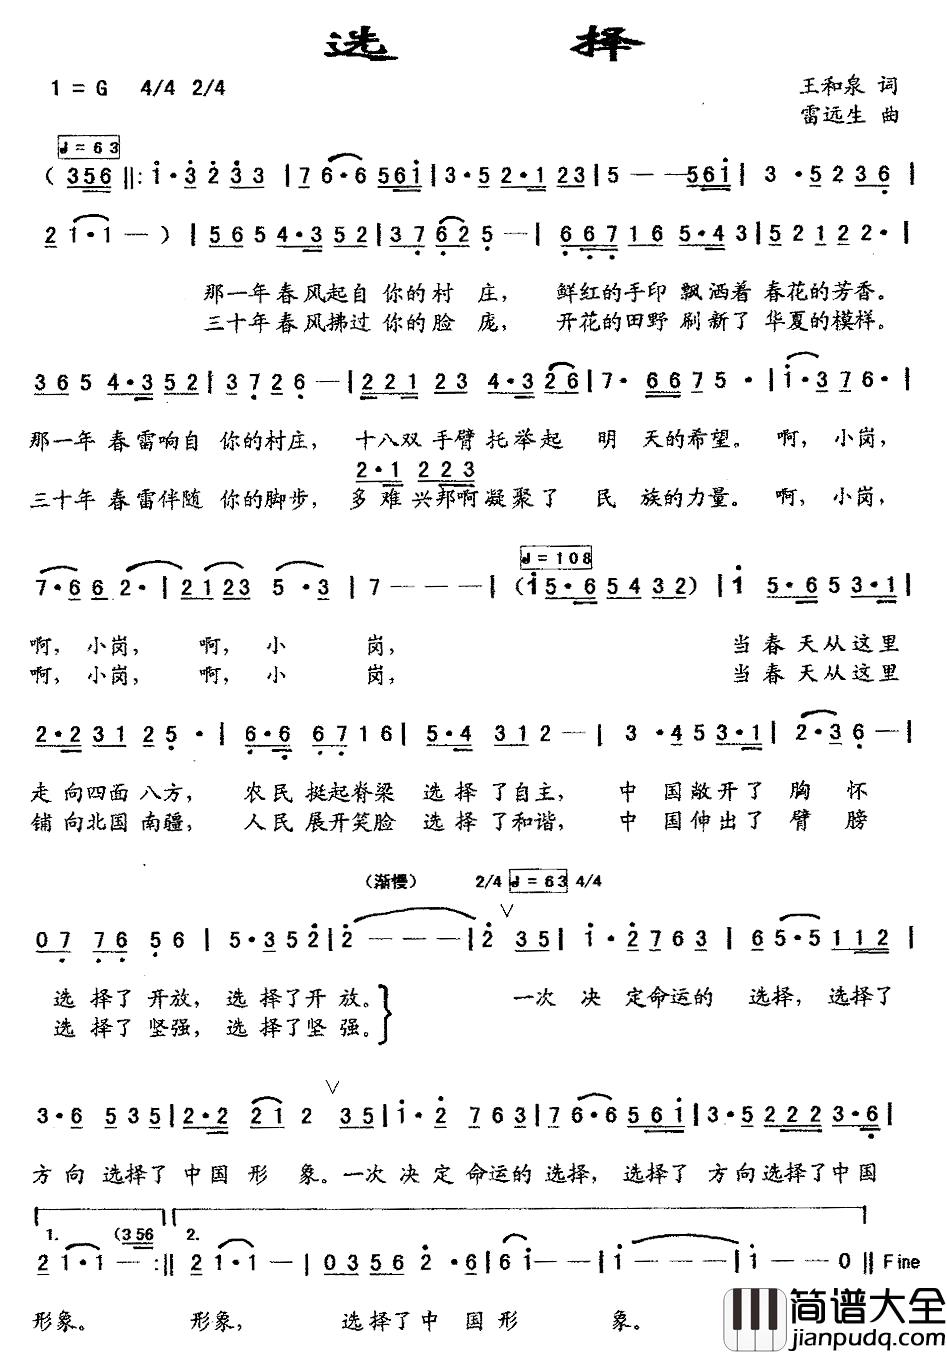 选 择
1 = G 4/4 2/4
王和泉 词
雷远生 曲
♩= 63
( 356 ‖: i · 3 2 3 3 | 7 6 · 6 561i | 3 · 5 2 · 1 23 | 5 — — 561i | 3 · 5 2 3 6 |
2 1 · 1 — ) | 5 6 5 4 · 3 5 2 | 3 7 6 2 5 — | 6 6 7 1 6 5 · 4 3 | 5 2 1 2 2 · |
那一年春风起自 你的村 庄, 鲜红的手印 飘洒着 春花的芳香。
三十年春风拂过 你的脸 庞, 开花的田野 刷新了 华夏的模样。
3 6 5 4 · 3 5 2 | 3 7 2 6 — | 2 2 1 2 3 4 · 3 2 6 | 7 · 6 6 7 5 · | i · 3 7 6 · |
那一年 春雷响自 你的村庄, 十八双 手臂 托举起 明 天的希望。 啊, 小岗,
2 · 1 2 2 3
三十年 春雷伴随 你的脚步, 多 难 兴邦啊凝聚了 民 族的力量。 啊, 小岗,
♩= 108
7 · 6 6 2 · | 2 1 2 3 5 · 3 | 7 — — — | ( i 5 · 6 5 4 3 2 ) | i 5 · 6 5 3 · 1 |
啊, 小岗, 啊, 小 岗, 当 春 天从这里
啊, 小岗, 啊, 小 岗, 当 春 天从这里
2 · 2 3 1 2 5 · | 6 · 6 6 7 1 6 | 5 · 4 3 1 2 — | 3 · 4 5 3 · 1 | 2 · 3 6 — |
走 向四面 八方, 农民 挺起脊梁 选 择 了自主, 中 国敞开了 胸 怀
铺 向北国 南疆, 人民 展开笑脸 选 择 了和谐, 中 国伸出了 臂 膀
(渐慢) 2/4 ♩= 63 4/4
0 7 7 6 5 6 | 5 · 3 5 2 | 2 — — — | 2 ∨ 3 5 | i · 2 7 6 3 | 6 5 · 5 1 1 2 |
选 择了 开放, 选 择了开 放。 一次 决 定命运的 选择, 选择了
选 择了 坚强, 选 择了坚 强。
3 · 6 5 3 5 | 2 · 2 2 1 2 ∨ 3 5 | i · 2 7 6 3 | 7 6 · 6 5 6 i | 3 · 5 2 2 2 3 · 6 |
方 向 选择了 中 国 形 象。一次 决 定 命运的 选择, 选择了 方向选择了中国
1. (3 56 2.
2 1 · 1 — :‖ 2 1 · 1 — | 0 3 5 6 2 · 6 | 6 i — — | i — — — | i — — 0 ‖ Fine
形象。 形象, 选择了中 国形 象。
简谱大全
jianpudq.com